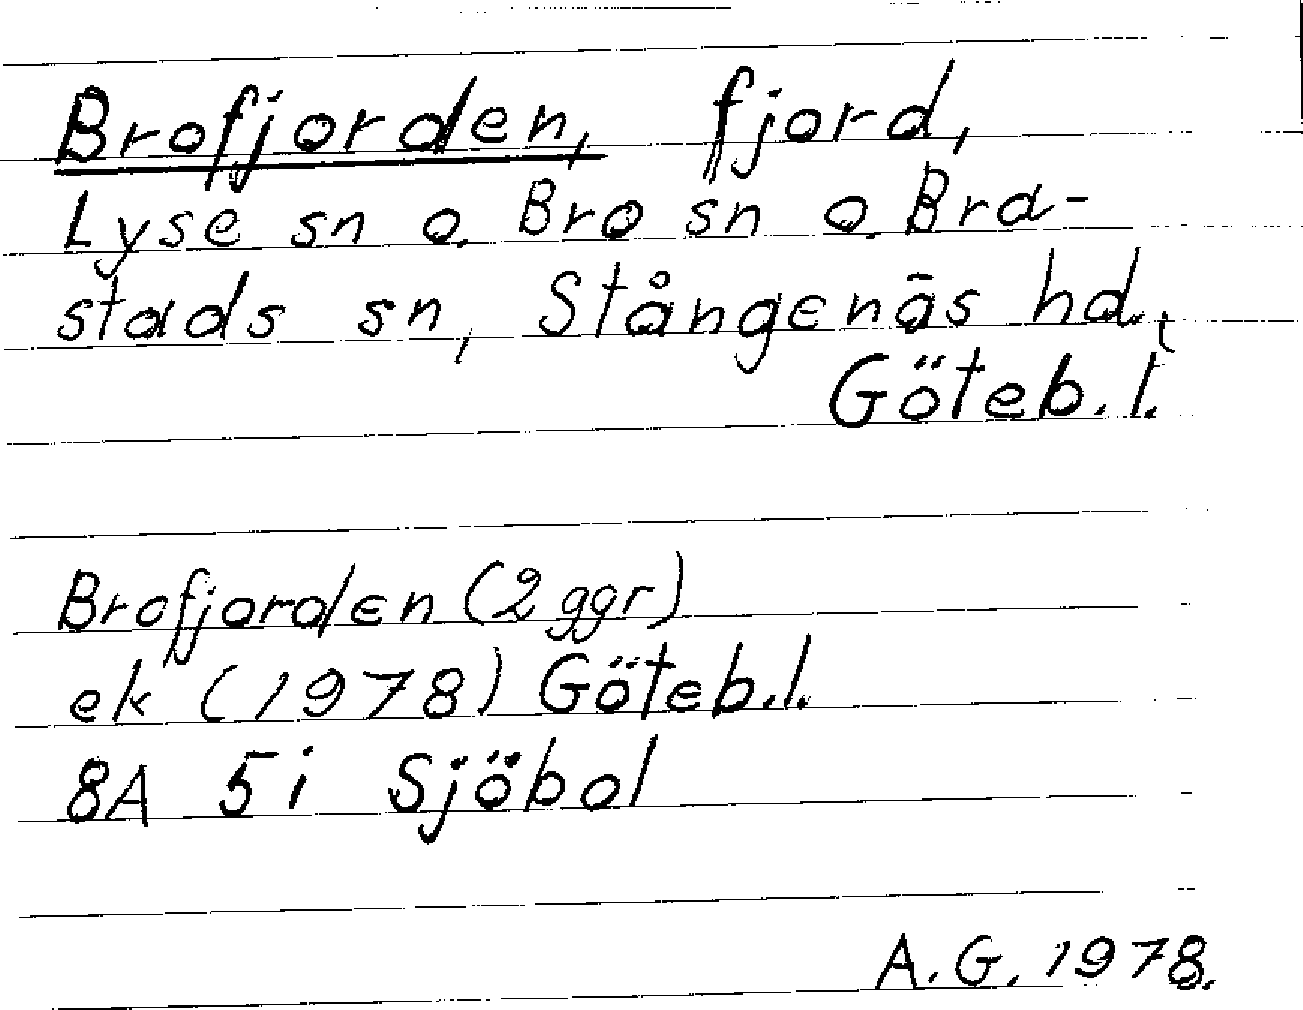 Brofjorden, fjord,
Lyse sn o. Bro sn o. Bra-
stads sn, Stångenäs hd.,
Göteb. l.
Brofjorden (2 ggr)
ek (1978) Göteb. l.
8A 5i Sjöbol
A. G. 1978.